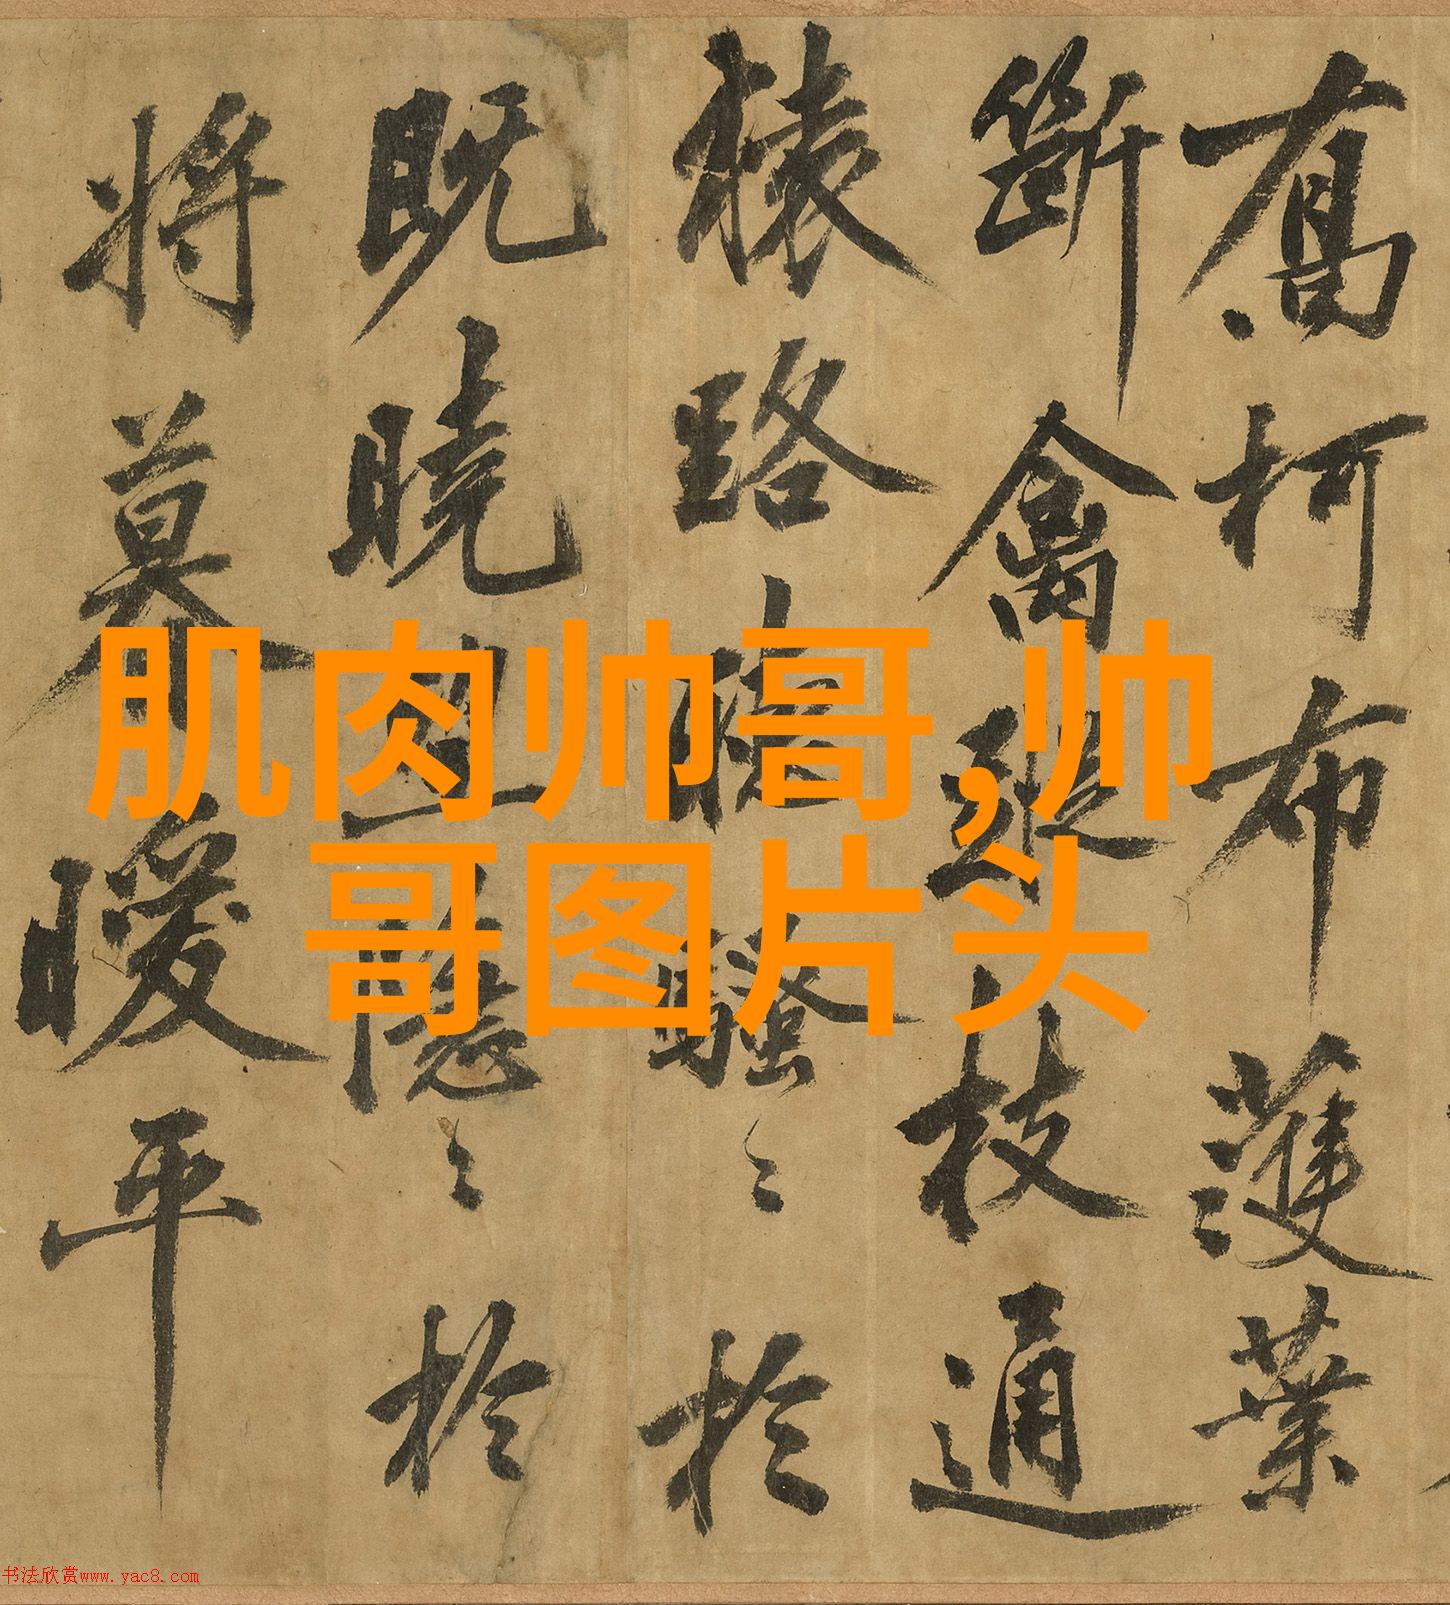 喬柯布濩葉
斷禽枝通
猿路騷〻於
既曉隱〻於
將暮曖平
肌肉帅哥,帅
哥图片头
书法欣赏www.yac8.com